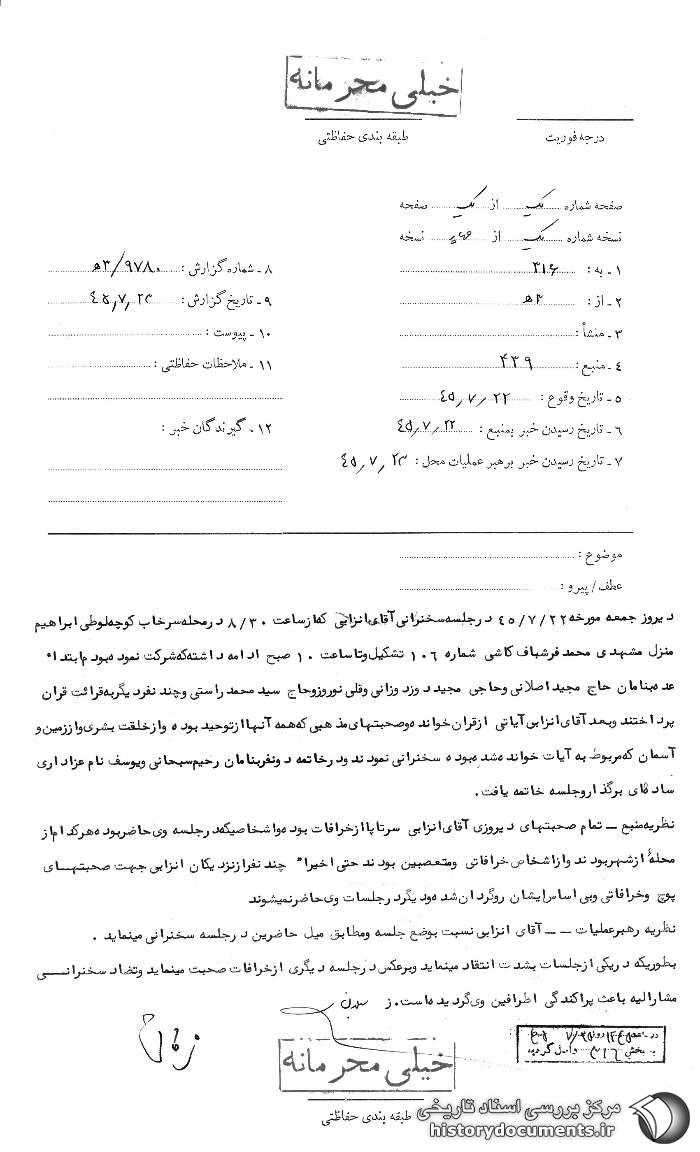 خیلی محرمانه
درجه فوریت
طبقه بندی حفاظتی
صفحه شماره یک از یک صفحه
نسخه شماره یک از نسخه
۱ـ به : ۳۱۶
۲ـ از : ۳ه
۳ـ منشأ :
۴ـ منبع : ۴۳۹
۵ـ تاریخ وقوع : ۴۵٫۷٫۲۲
۶ـ تاریخ رسیدن خبر بمنبع : ۴۵٫۷٫۲۲
۷ـ تاریخ رسیدن خبر برهبر عملیات محل : ۴۵٫۷٫۲۳
۸ـ شماره گزارش : ۹۷۸۰/۳ه
۹ـ تاریخ گزارش : ۴۵٫۷٫۲۳
۱۰ـ پیوست :
۱۱ـ ملاحظات حفاظتی :
۱۲ـ گیرندگان خبر :
موضوع :
عطف/پیرو :
دیروز جمعه مورخه ۴۵/۷/۲۲ در جلسه سخنرانی آقای انزابی که از ساعت ۸/۳۰ در محله سرخاب کوچه لوطی ابراهیم
منزل مشهدی محمد فرشباف کاشی شماره ۱۰۶ تشکیل و تا ساعت ۱۰ صبح ادامه داشته که شرکت نموده بودم ابتداء
عده بنامان حاج مجید اصلانی و حاجی مجید دوزدوزانی و قلی نوروز و حاج سید محمد راستی و چند نفر دیگر به قرائت قران
پرداختند و بعد آقای انزابی آیاتی از قران خوانده و صحبتهای مذهبی که همه آنها از توحید بوده و از خلقت بشری و از زمین و
آسمان که مربوط به آیات خوانده شده بوده سخنرانی نمودند و در خاتمه دو نفر بنامان رحیم سبحانی و یوسف نام عزاداری
ساده ای برگذار و جلسه خاتمه یافت.
نظریه منبع ـ تمام صحبتهای دیروزی آقای انزابی سرتا پا از خرافات بوده و اشخاصیکه در جلسه وی حاضر بوده هرکدام از
محلهٔ از شهر بودند و از اشخاص خرافاتی و متعصبین بودند حتی اخیراً چند نفر از نزدیکان انزابی جهت صحبتهای
پوچ و خرافاتی و بی اساس ایشان روگردان شده و دیگر در جلسات وی حاضر نمیشوند
نظریه رهبر عملیات ـ ـ آقای انزابی نسبت بوضع جلسه و مطابق میل حاضرین در جلسه سخنرانی مینماید .
بطوریکه در یکی از جلسات بشدت انتقاد مینماید و برعکس در جلسه دیگری از خرافات صحبت مینماید و تضاد سخنرانی
مشارالیه باعث پراکندگی اطرافین وی گردیده است. ز
به بخش ۳۱۶ واصل گردید
خیلی محرمانه
طبقه بندی حفاظتی
مرکز بررسی اسناد تاریخی
historydocuments.ir